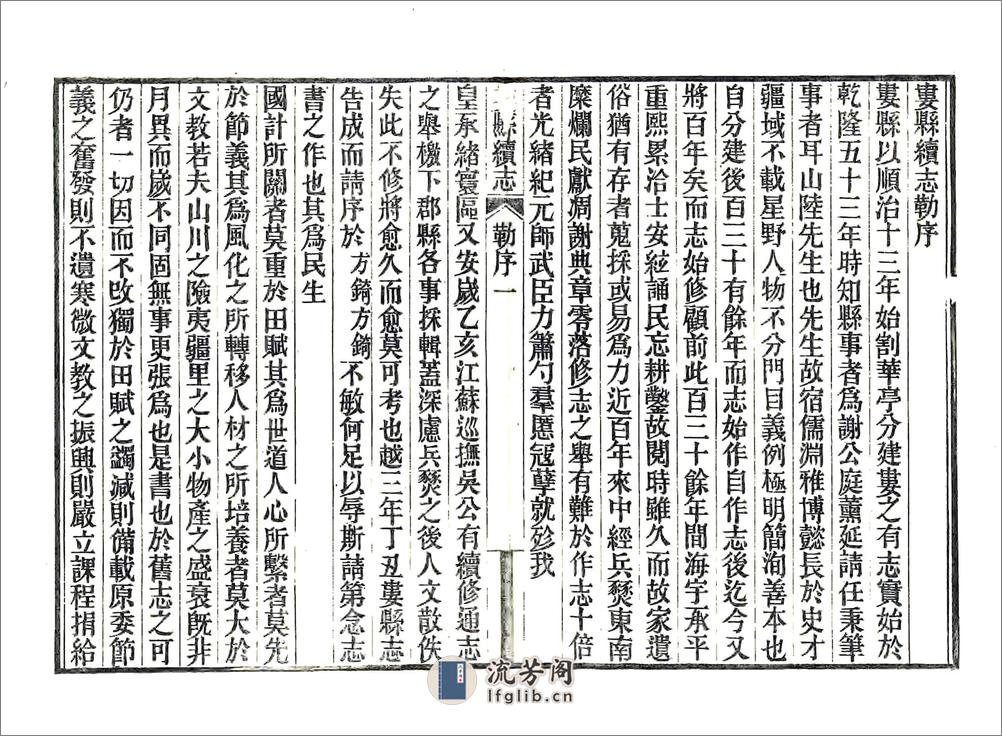 婁縣續志勒序
婁縣以順治十三年始割華亭分建婁之有志實始於
乾隆五十三年時知縣事者爲謝公庭薰延請任秉筆
事者耳山陸先生也先生故宿儒淵雅博懿長於史才
疆域不載星野人物不分門目義例極明簡洵善本也
自分建後百三十有餘年而志始作自作志後迄今又
將百年矣而志始修顧前此百三十餘年間海宇承平
重熙累洽士安絃誦民忘耕鑿故閱時雖久而故家遺
俗猶有存者蒐採或易爲力近百年來中經兵燹東南
糜爛民獻凋謝典章零落修志之舉有難於作志十倍
者光緒紀元師武臣力簫勺羣慝寇孽就殄我
縣續志 勒序 一
皇承緒寰區又安歲乙亥江蘇巡撫吳公有續修通志
之舉檄下郡縣各事採輯蓋深慮兵燹之後人文散佚
失此不修將愈久而愈莫可考也越三年丁丑婁縣志
告成而請序於方錡方錡不敏何足以辱斯請第念志
書之作也其爲民生
國計所關者莫重於田賦其爲世道人心所繫者莫先
於節義其爲風化之所轉移人材之所培養者莫大於
文教若夫山川之險夷疆里之大小物產之盛衰旣非
月異而歲不同固無事更張爲也是書也於舊志之可
仍者一切因而不改獨於田賦之蠲減則備載原委節
義之奮發則不遺寒微文教之振興則嚴立課程捐給
流芳阁
lfglib.cn